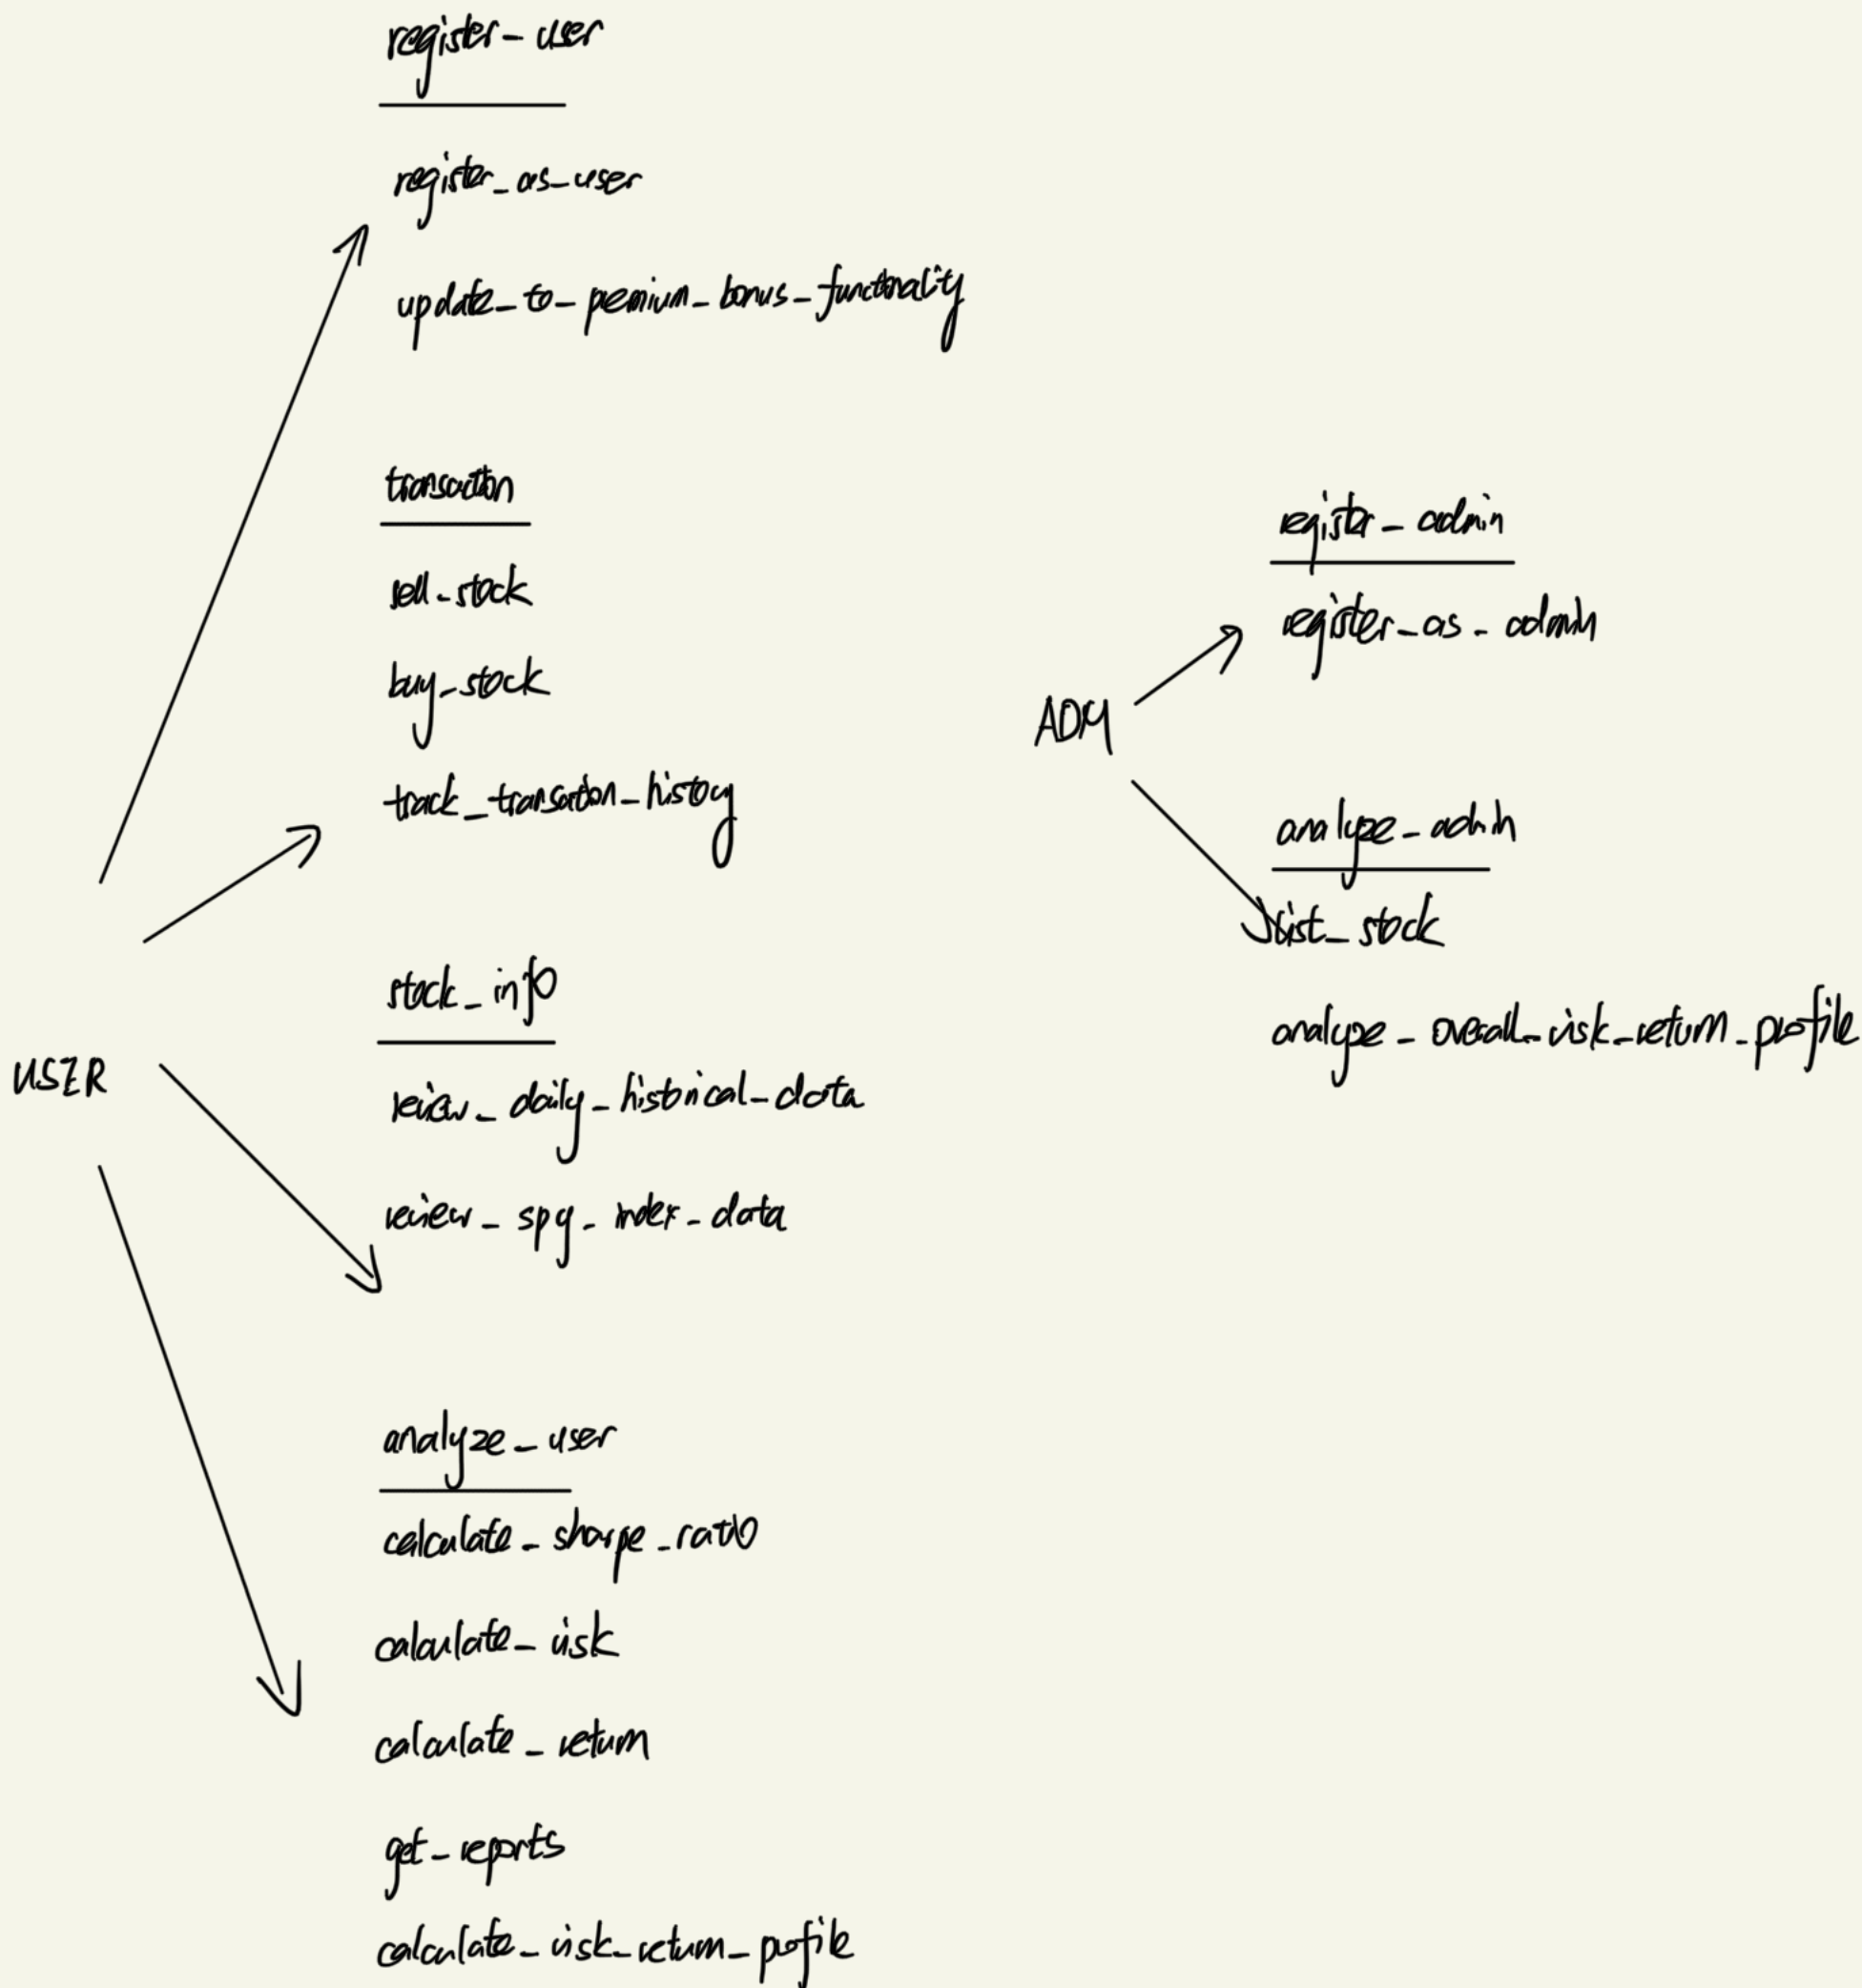 register_user
register_as_user
update_to_premium_bonus_functionality
transaction
sell_stock
buy_stock
track_transaction_history
stock_info
review_daily_historical_data
review_spy_index_data
USER
analyze_user
calculate_sharpe_ratio
calculate_risk
calculate_return
get_reports
calculate_risk_return_profile
ADM
register_admin
register_as_admin
analyze_admin
list_stock
analyze_overall_risk_return_profile